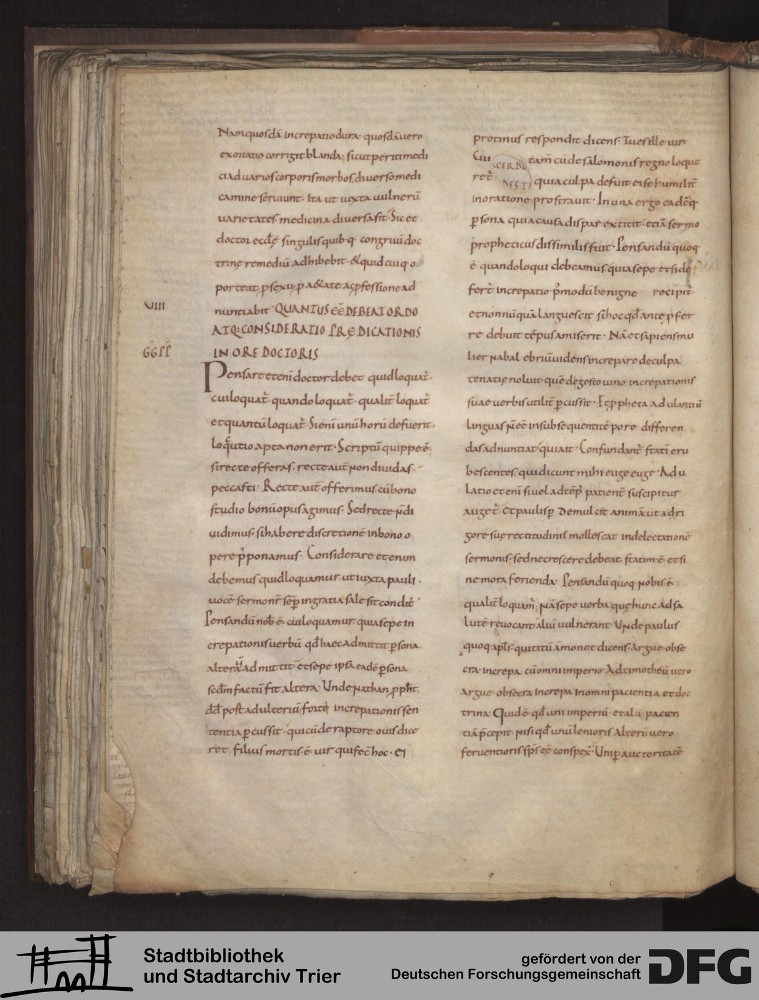 Namquosdā increpatio dura· quosdā uero
exortatio corrigit blanda; sicut periti medi
ci ad uarios corporis morbos diuerso medi
camine seruiunt· Ita ut iuxta uulnerū
uarietates medicina diuersa sit· Sic et
doctor eccłę singulis quibq; congruū doc
trinę remediū adhibebit· & quid cuiq; o
porteat p sexu, p aetate ac pfessione ad
nuntiabit· QUANTUS EÉ DEBEAT ORDO
ATQ; CONSIDERATIO PRĘDICATIONIS
IN ORE DOCTORIS
VIII
GGPP
Pensare etenī doctor debet quid loquat̄·
cui loquat̄· quando loquat̄· qualit̄ loquat̄
et quantū loquat̄· Si enī unū horū defuerit·
locutio apta non erit· Scriptū quippe ē·
si recte offeras· recte aut̄ non diuidas·
peccasti· Recte aut̄ offerimus cū bono
studio bonū opus agimus· Sed recte ñ di
uidimus· si habere discretionē in bono o
pere p̄ponamus· Considerare etenim
debemus quid loquamur· ut iuxta pauli
uocē sermo nr̄ sēp in gratia sale sit condit'
Pensandū nob̄ ē· cui loquamur· quia sepe in
crepationis uerbū qd̄ haec admittit psona
altera ñ admittit· et sepe ipsa eadē psona
scđm factū fit altera· Unde Nathan ppħt
dd̄ post adulteriū forte increpationis sen
tentia pcussit· qui cū de raptore ouis dice
ret· filius mortis ē uir qui fec̄ hoc· ei
protinus respondit dicens· Tu es ille uir
Cui tam̄ cū de salomonis regno loque
ret̄ quia culpa defuit ei se humilit̄
in oratione prostrauit· In una ergo eadēq;
psona quia causa dispar extitit· etiā sermo
propheticus dissimilis fuit· Pensandū quoq;
ē quando loqui debeamus quia sepe etsi dif
fert̄ increpatio p̄modū benigne recipit̄·
et nonnūquā languescit si hoc qđ ante pfer
re debuit tēpus amiserit· Nā et sapiens mu
lier nabal ebriū uidens increpare de culpa
tenatię noluit· quē degesto uino increpationis
suae uerbis utilit̄ pcussit· Et ppheta adulantiū
linguas ñ eē in subsequenti tēpore differen
das adnuntiat qui ait· Confundant̄ statī eru
bescentes· qui dicunt mihi euge euge· Adu
latio etenī si uel ad tēp̄ patient̄ suscipitur
auget̄· Et paulisp̄ demulcit animā ut a dri
gore suę rectitudinis mollescat in delectationē
sermonis· sed ne crescere debeat statim ē et si
ne mora ferienda· Pensandū quoq; nobis ē
qualit̄ loquam̄· Nā sepe uerba quę hunc ad sa
lutē reuocant aliū uulnerant· Unde paulus
quoq; apłs qui titū āmonet dicens· Argue obse
cra· increpa cū omni imperio· Ad timotheū uero
argue· obsecra increpa in omni pacientia et doc
trina· Quid ē qđ uni imperiū· et alii pacien
tiā p̄cepit· nisi qđ unū lenioris alterū uero
feruentioris sp̄s eē conspex̄· Uni p auctoritatē
Stadtbibliothek
und Stadtarchiv Trier
gefördert von der
Deutschen Forschungsgemeinschaft
DFG